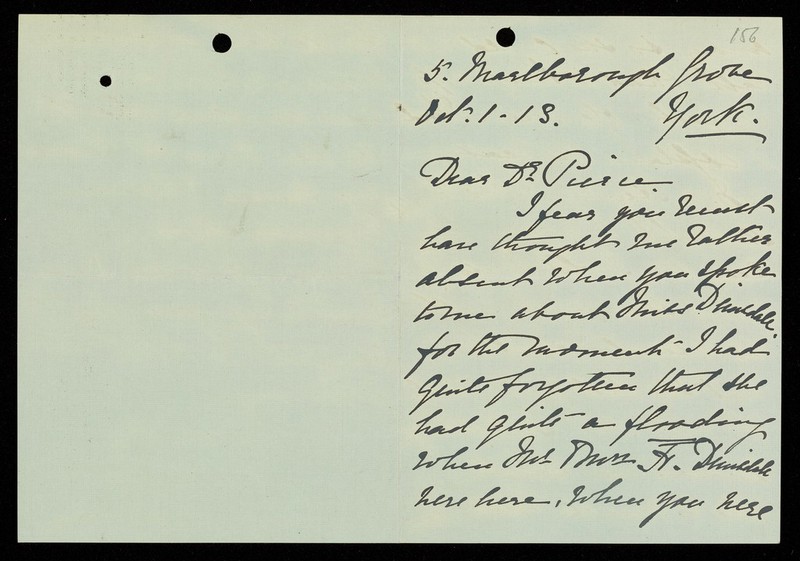 156
5. Marlborough Grove
Oct. 1 - 13. York.
Dear Dr. Pierce
I fear you must
have thought me rather
absent when you spoke
to me about Miss Dimsdale.
for the moment I had
quite forgotten that she
had quite a flooding
when Mr. & Mrs. F. Dimsdale
were here, when you were